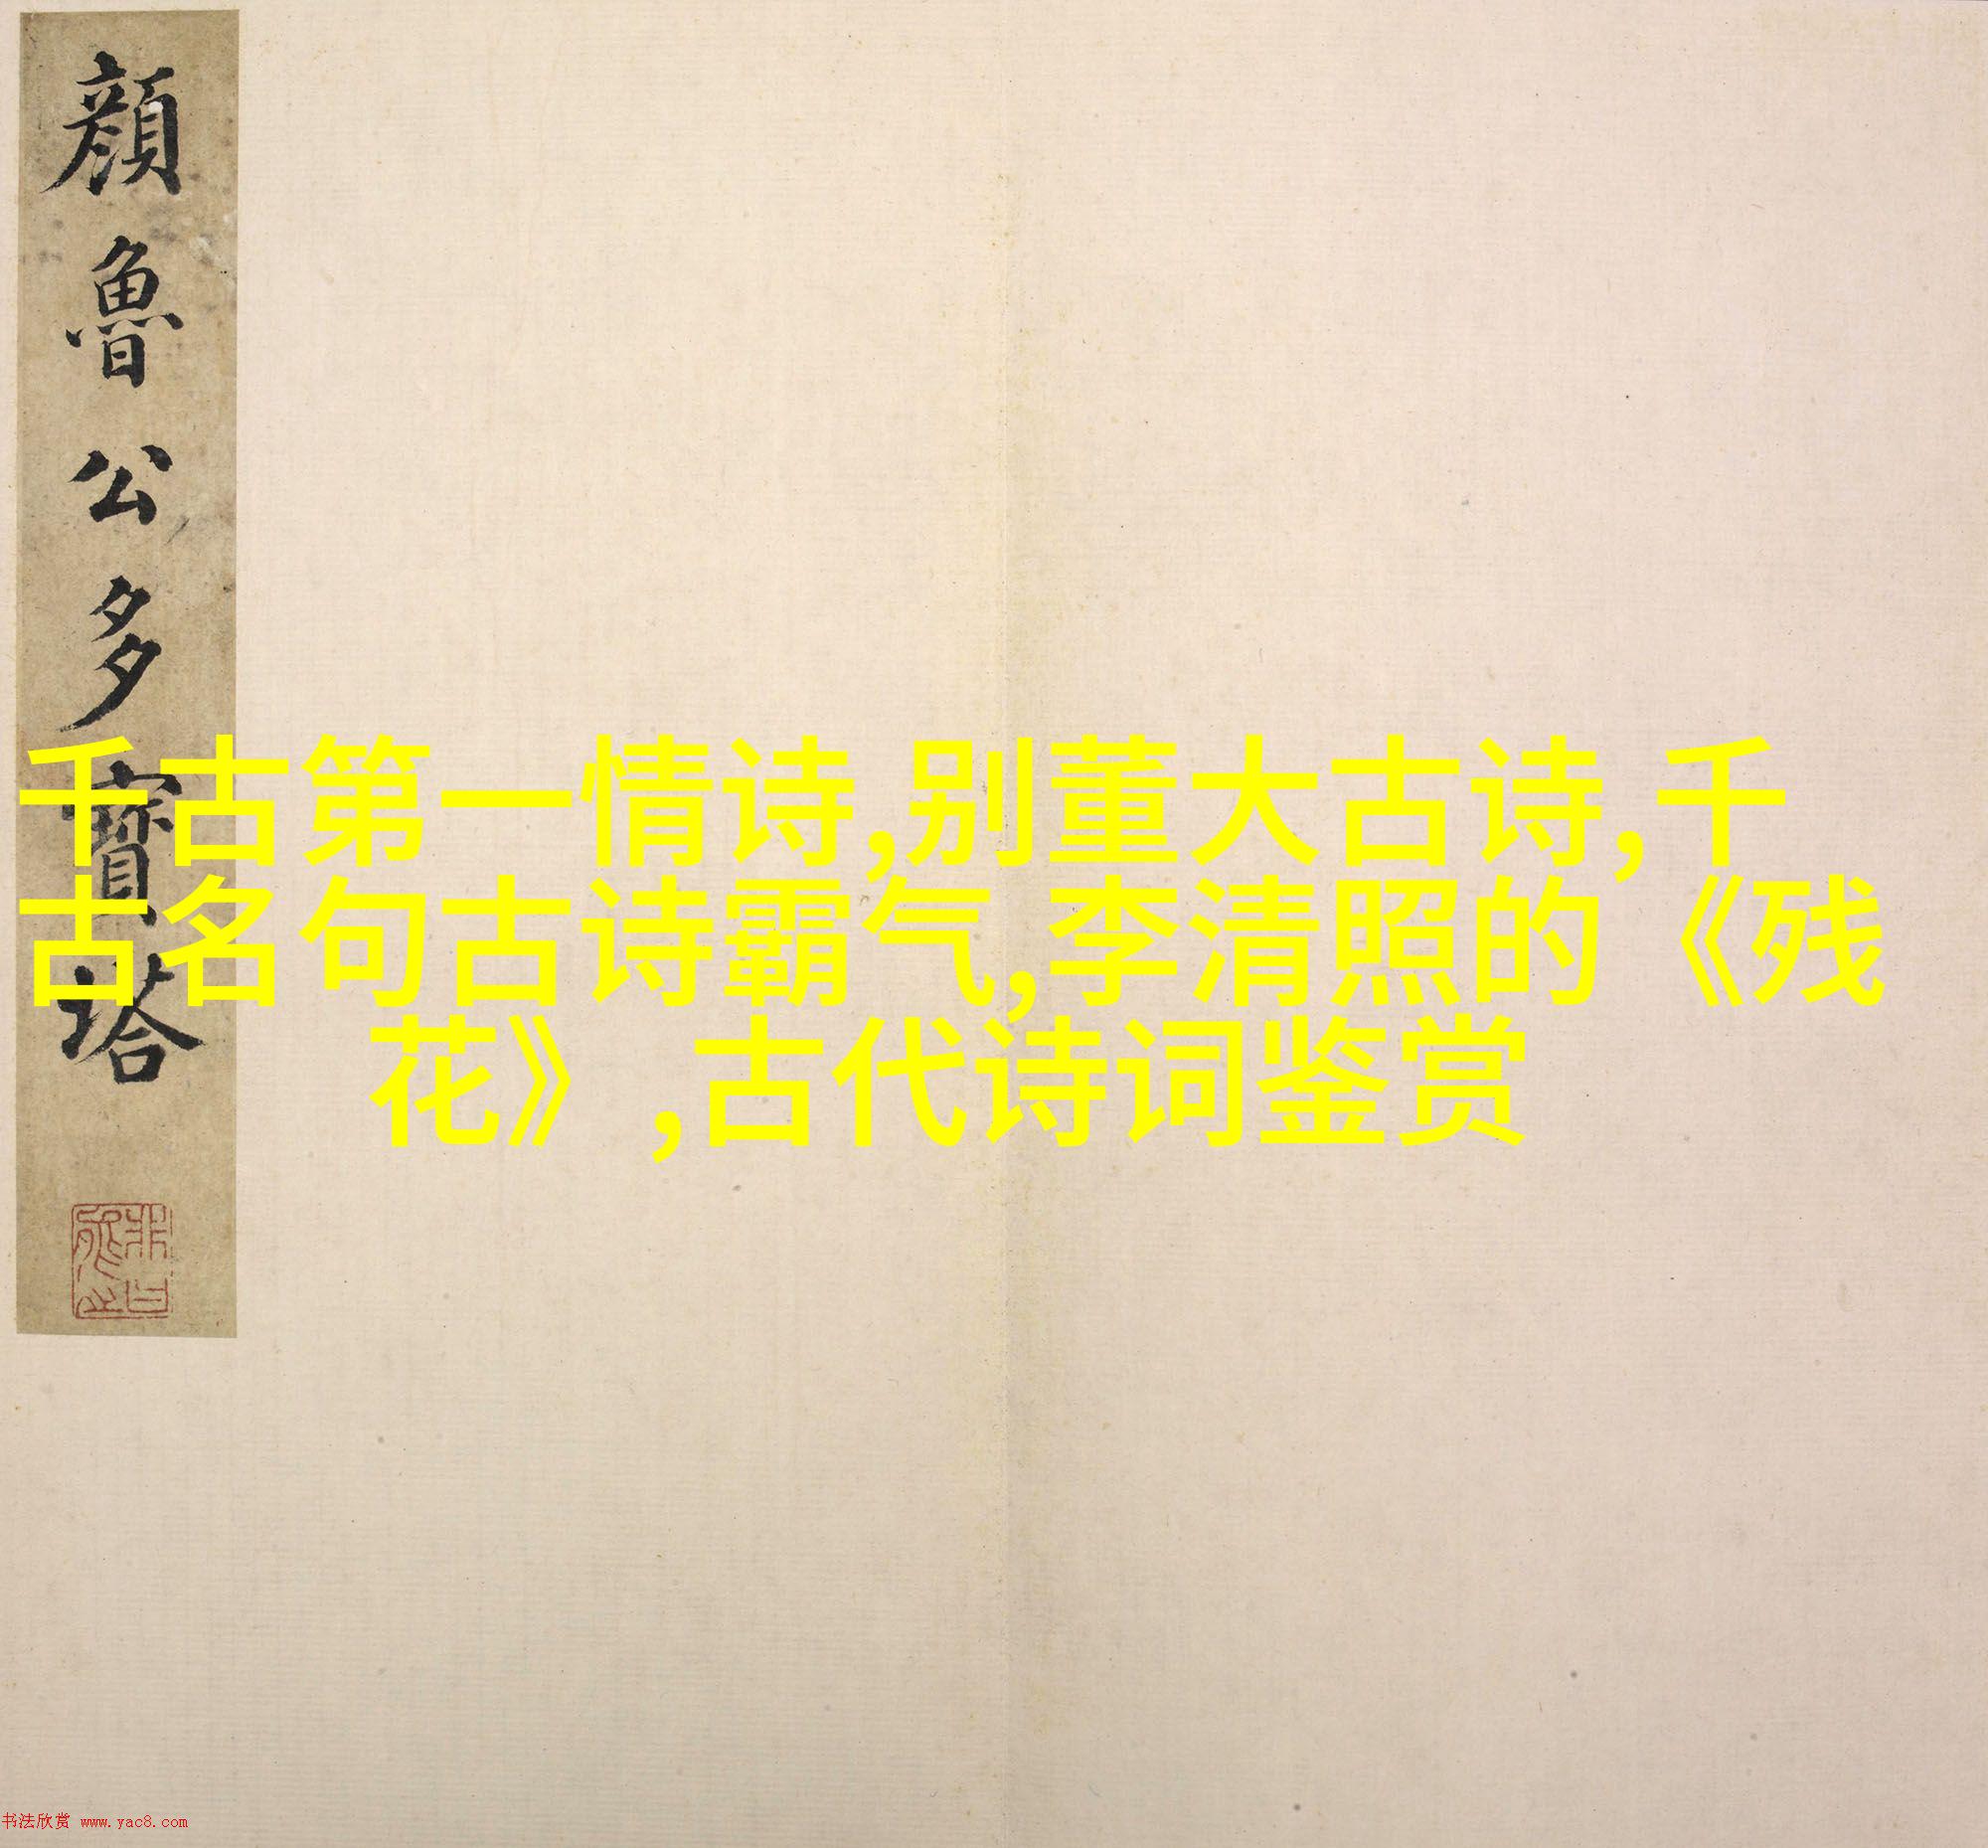 顏魯公多寶塔
千古第一情诗,别董大古诗,千
古名句古诗霸气,李清照的《残
花》,古代诗词鉴赏
书法欣赏 www.yac8.com